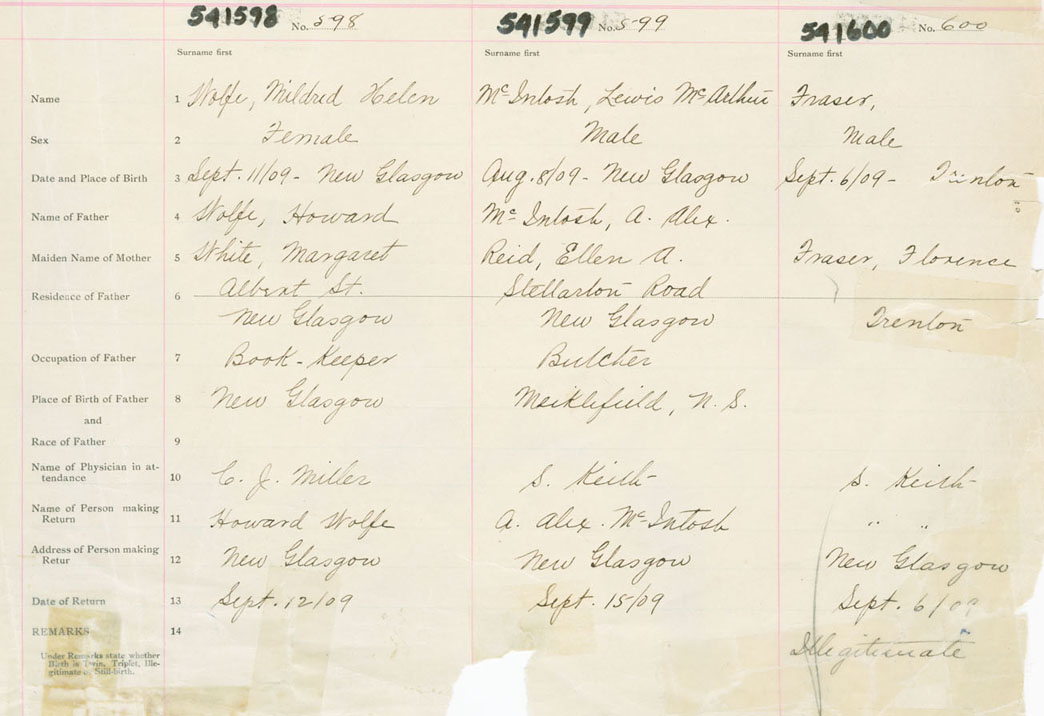 541598 No. 598 541599 No. 599 541600 No. 600
Surname first Surname first Surname first
Name 1 Wolfe, Mildred Helen McIntosh, Lewis McArthur Fraser,
Sex 2 Female Male Male
Date and Place of Birth 3 Sept. 11/09 - New Glasgow Aug. 8/09 - New Glasgow Sept. 6/09 - Trenton
Name of Father 4 Wolfe, Howard McIntosh, A. Alex.
Maiden Name of Mother 5 White, Margaret Reid, Ellen A. Fraser, Florence
Residence of Father 6 Albert St. Stellarton Road
New Glasgow New Glasgow Trenton
Occupation of Father 7 Book-Keeper Butcher
Place of Birth of Father 8 New Glasgow Meiklefield, N. S.
and
Race of Father 9
Name of Physician in at-
tendance 10 C. J. Miller S. Keith S. Keith
Name of Person making
Return 11 Howard Wolfe A. Alex. McIntosh " "
Address of Person making
Retur 12 New Glasgow New Glasgow New Glasgow
Date of Return 13 Sept. 12/09 Sept. 15/09 Sept. 6/09
REMARKS 14
Illegitimate
Under Remarks state whether
Birth is Twin, Triplet, Ille-
gitimate o Still-birth.